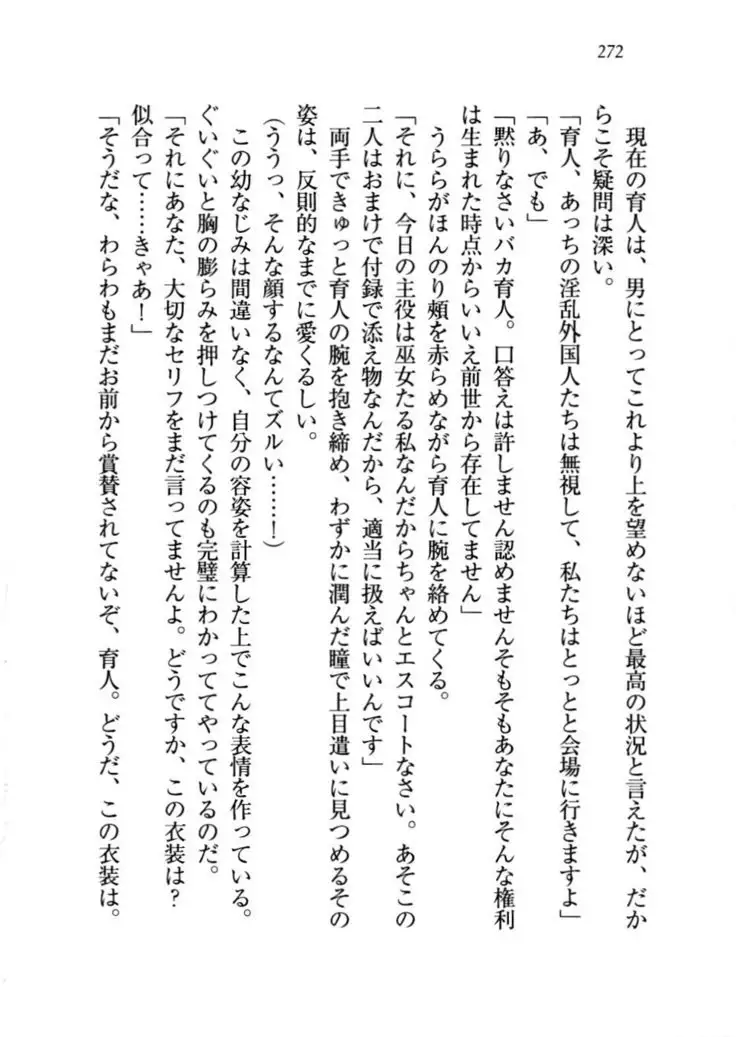 272
現在の育人は、男にとってこれより上を望めないほど最高の状況と言えたが、だか
らこそ疑問は深い。
「育人、あっちの淫乱外国人たちは無視して、私たちはとっとと会場に行きますよ」
「あ、でも」
「黙りなさいバカ育人。口答えは許しません認めませんそもそもあなたにそんな権利
は生まれた時点からいいえ前世から存在してません」
うららがほんのり頰を赤らめながら育人に腕を絡めてくる。
「それに、今日の主役は巫女たる私なんだからちゃんとエスコートなさい。あそこの
二人はおまけで付録で添え物なんだから、適当に扱えばいいんです」
両手できゅっと育人の腕を抱き締め、わずかに潤んだ瞳で上目遣いに見つめるその
姿は、反則的なまでに愛くるしい。
（ううっ、そんな顔するなんてズルい……！）
この幼なじみは間違いなく、自分の容姿を計算した上でこんな表情を作っている。
ぐいぐいと胸の膨らみを押しつけてくるのも完璧にわかっててやっているのだ。
「それにあなた、大切なセリフをまだ言ってませんよ。どうですか、この衣装は？
似合って……きゃあ！」
「そうだな、わらわもまだお前から賞賛されてないぞ、育人。どうだ、この衣装は。